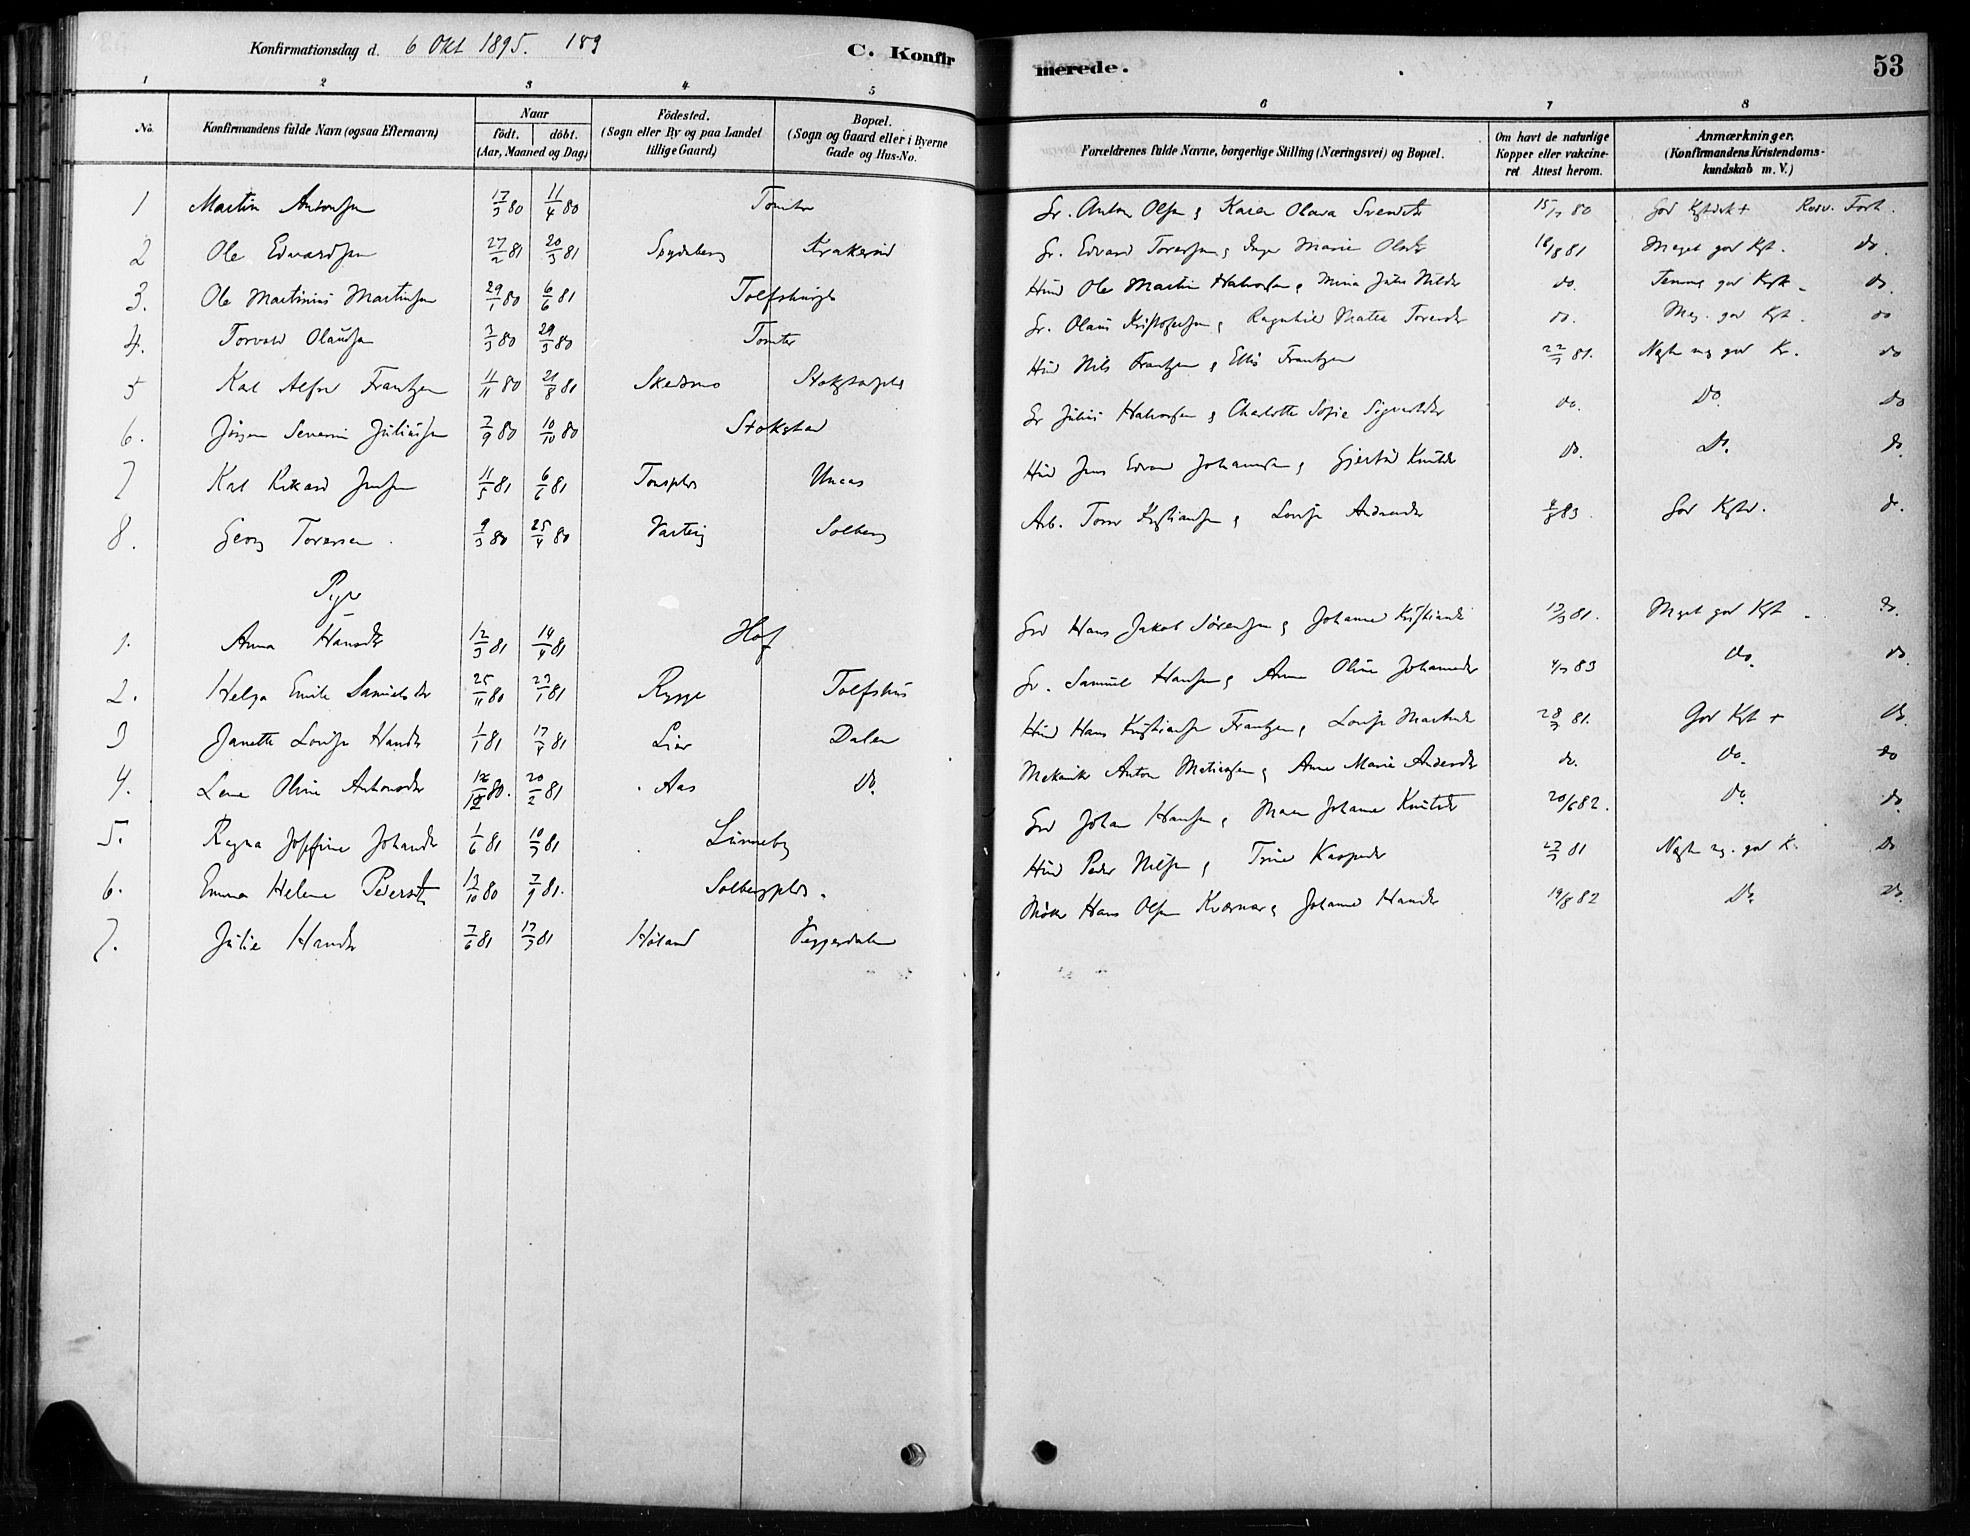 Konfirmationsdag d. 6 Okt 1895. 189
C. Konfir
merede.
53
1 2 3 4 5 6 7 8
No.
Konfirmandens fulde Navn (ogsaa Efternavn)
Naar
födt. döbt.
(Aar, Maaned og Dag)
Födested.
(Sogn eller By og paa Landet
tillige Gaard)
Bopæl.
(Sogn og Gaard eller i Byerne
Gade og Hus-No.
Forældrenes fulde Navne, borgerlige Stilling (Næringsvei) og Bopæl.
Om havt de naturlige
Kopper eller vakcine-
ret Attest herom.
Anmærkninger.
(Konfirmandens Kristendoms-
kundskab m. V.)
1 Martin Antonsen 17/3 80 11/4 80 Tomter Gr. Anton Olsen & Karen Olava Svendsdtr 15/7 80 God Kristdsk + Resv. Forh.
2 Ole Edvardsen 27/2 81 20/3 81 Spydeberg Krakerud Gr. Edvard Toresen & Inger Marie Olsdtr 18/8 81 Meget god Kst. do.
3. Ole Martinius Martinsen 29/1 80 6/6 81 Tolfshus Hmd Ole Martin Halvorsen & Mina Julie Nilsdtr do. Temme god Kst. do.
4. Torvald Olausen 3/3 80 29/3 80 Tomter Gr. Olaus Kristofersen & Ragnhild Matea Toresdtr do. Meg. god Kst. do
5 Karl Alfred Frantzen 11/11 80 21/8 81 Skedsmo Stokstadpls Hmd Nils Frantzen & Ellis Frantzen 22/7 81. Nogte ng god Kr. do
6. Jörgen Severin Juliussen 7/9 80 10/10 80 Stokstad Gr Julius Halvorsen & Charlotte Sofie Sigvartsdtr do. Do. do
7 Karl Rikard Jensen 11/5 81 6/6 81 Tomspls Unaas Hmd Jens Edvard Johannesen & Gjertrud Knutsdtr do. Do. do.
8. Georg Toresen 9/3 80 25/4 80 Varteig Solberg Arb. Tore Kristiansen & Lovise Andersdtr 4/8 83. God Kstd. do.
Piger
1. Anna Hansdtr 12/3 81 14/4 81 Hof Grd Hans Jakob Sørensen & Johanne Kristiansdtr 19/9 81. Meget god Kst. do.
2. Helga Emilie Samuelsdtr 25/11 80 23/1 81 Rygge Tolfshus Gr. Samuel Hansen & Anne Oline Johannesdtr 4/7 83 do. do.
3 Janette Lovise Hansdtr 1/1 81 17/4 81 Lier Dalen Hmd Hans Kristiansen Frantzen & Lovise Martinsdtr 28/9 81. God Kst + do.
4. Lene Oline Antonsdtr 18/12 80. 20/2 81 Aas Do. Mekaniker Anton Matiesen & Anne Marie Andersdtr do. do. do
5. Ragna Josefine Johansdtr 1/6 81 10/7 81 Lunneby Grd Johan Hansen & Maren Johanne Knutsdtr 20/6 82. do. do.
6. Emma Helene Pedersdtr 13/10 80 7/9 81. Solbergpls. Hmd Peder Nilsen & Trine Kaspersdtr 23/7 81 Nogte ng. god K. do
7. Julie Hansdtr 7/6 81 17/7 81 Høland Vesperdalen Møller Hans Olsen Kværner & Johanne Hansdtr 19/8 82 Do. do.